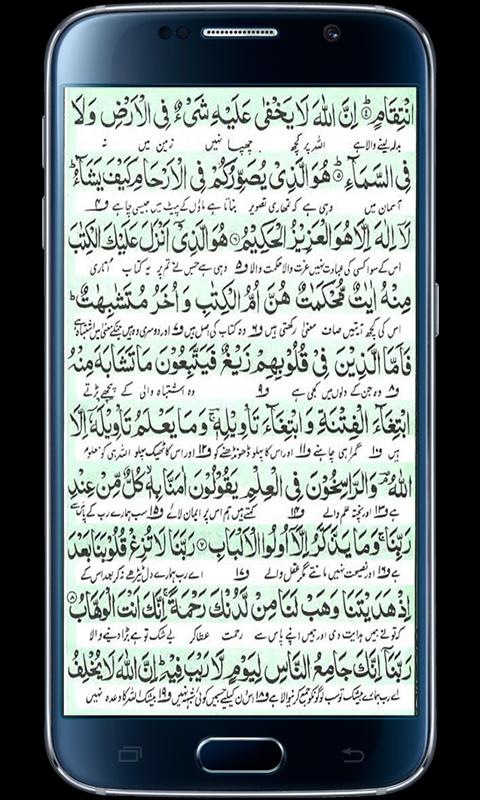 انْتِقَامٍ ﴿۴﴾ اِنَّ اللّٰهَ لَا یَخْفٰى عَلَیْهِ شَیْءٌ فِی الْاَرْضِ وَلَا
بدلہ لینے والا ہے اللہ پر کچھ چھپا نہیں زمین میں نہ
فِی السَّمَآءِ ﴿۵﴾ هُوَ الَّذِیْ یُصَوِّرُكُمْ فِی الْاَرْحَامِ كَیْفَ یَشَآءُ
آسمان میں وہی ہے کہ تمہاری تصویر بناتا ہے ماؤں کے پیٹ میں جیسی چاہے
لَاۤ اِلٰهَ اِلَّا هُوَ الْعَزِیْزُ الْحَكِیْمُ ﴿۶﴾ هُوَ الَّذِیْۤ اَنْزَلَ عَلَیْكَ الْكِتٰبَ
اس کے سوا کسی کی عبادت نہیں عزت والا حکمت والا وہی ہے جس نے تم پر یہ کتاب اتاری
مِنْهُ اٰیٰتٌ مُّحْكَمٰتٌ هُنَّ اُمُّ الْكِتٰبِ وَاُخَرُ مُتَشٰبِهٰتٌ
اس کی کچھ آیتیں صاف معنی رکھتی ہیں وہ کتاب کی اصل ہیں اور دوسری وہ ہیں جن کے معنی میں اشتباہ
فَاَمَّا الَّذِیْنَ فِیْ قُلُوْبِهِمْ زَیْغٌ فَیَتَّبِعُوْنَ مَا تَشَابَهَ مِنْهُ
وہ جن کے دلوں میں کجی ہے وہ اشتباہ والی کے پیچھے پڑتے
ابْتِغَآءَ الْفِتْنَةِ وَابْتِغَآءَ تَاْوِیْلِهٖ وَمَا یَعْلَمُ تَاْوِیْلَهٗۤ اِلَّا
ہیں گمراہی چاہنے اور اس کا پہلو ڈھونڈھنے کو اور اس کا ٹھیک پہلو اللہ ہی کو معلوم
اللّٰهُ وَالرّٰسِخُوْنَ فِی الْعِلْمِ یَقُوْلُوْنَ اٰمَنَّا بِهٖ كُلٌّ مِّنْ عِنْدِ
ہے اور پختہ علم والے کہتے ہیں ہم اس پر ایمان لائے سب ہمارے رب کے پاس سے
رَبِّنَا وَمَا یَذَّكَّرُ اِلَّاۤ اُولُوا الْاَلْبَابِ ﴿۷﴾ رَبَّنَا لَا تُزِغْ قُلُوْبَنَا بَعْدَ
ہے اور نصیحت نہیں مانتے مگر عقل والے اے رب ہمارے دل ٹیڑھے نہ کر بعد اس کے
اِذْ هَدَیْتَنَا وَهَبْ لَنَا مِنْ لَّدُنْكَ رَحْمَةً اِنَّكَ اَنْتَ الْوَهَّابُ
کہ تو نے ہمیں ہدایت دی اور ہمیں اپنے پاس سے رحمت عطا کر بے شک تو ہے بڑا دینے والا
رَبَّنَاۤ اِنَّكَ جَامِعُ النَّاسِ لِیَوْمٍ لَّا رَیْبَ فِیْهِ اِنَّ اللّٰهَ لَا یُخْلِفُ
اے رب ہمارے بیشک تو سب لوگوں کو جمع کرنے والا ہے اس دن کیلئے جس میں کوئی شبہ نہیں بیشک اللہ کا وعدہ نہیں